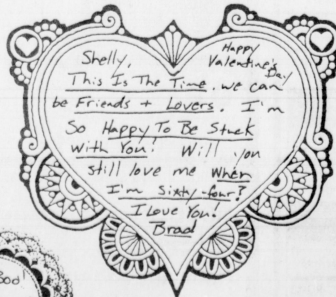 Happy
Valentine's
Day
Shelly,
This Is The Time. we can
be Friends + Lovers. I'm
So Happy To Be Stuck
With You! Will you
still love me When
I'm Sixty-four?
I Love You!
Brad
Boo!